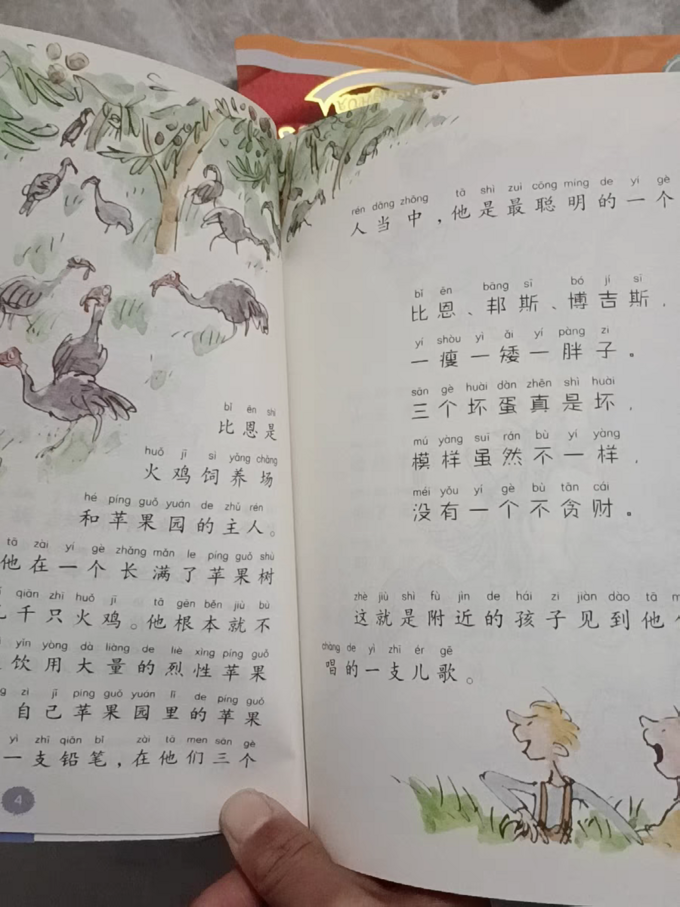 bǐ ēn shì
比恩是
huǒ jī sì yǎng chǎng
火鸡饲养场
hé píng guǒ yuán de zhǔ rén
和苹果园的主人。
tā zài yí gè zhǎng mǎn le píng guǒ shù
他在一个长满了苹果树
qiān zhī huǒ jī tā gēn běn jiù bù
千只火鸡。他根本就不
yǐn yòng dà liàng de liè xìng píng guǒ
饮用大量的烈性苹果
zì jǐ píng guǒ yuán lǐ de píng guǒ
自己苹果园里的苹果
yì zhī qiān bǐ zài tā men sān gè
一支铅笔，在他们三个
4
rén dāng zhōng tā shì zuì cōng míng de yí gè
人当中，他是最聪明的一个
bǐ ēn bāng sī bó jí sī
比恩、邦斯、博吉斯，
yí shòu yì ǎi yí pàng zi
一瘦一矮一胖子。
sān gè huài dàn zhēn shì huài
三个坏蛋真是坏，
mú yàng suī rán bù yí yàng
模样虽然不一样，
méi yǒu yí gè bù tān cái
没有一个不贪财。
zhè jiù shì fù jìn de hái zi jiàn dào tā
这就是附近的孩子见到他
chàng de yì zhī ér gē
唱的一支儿歌。